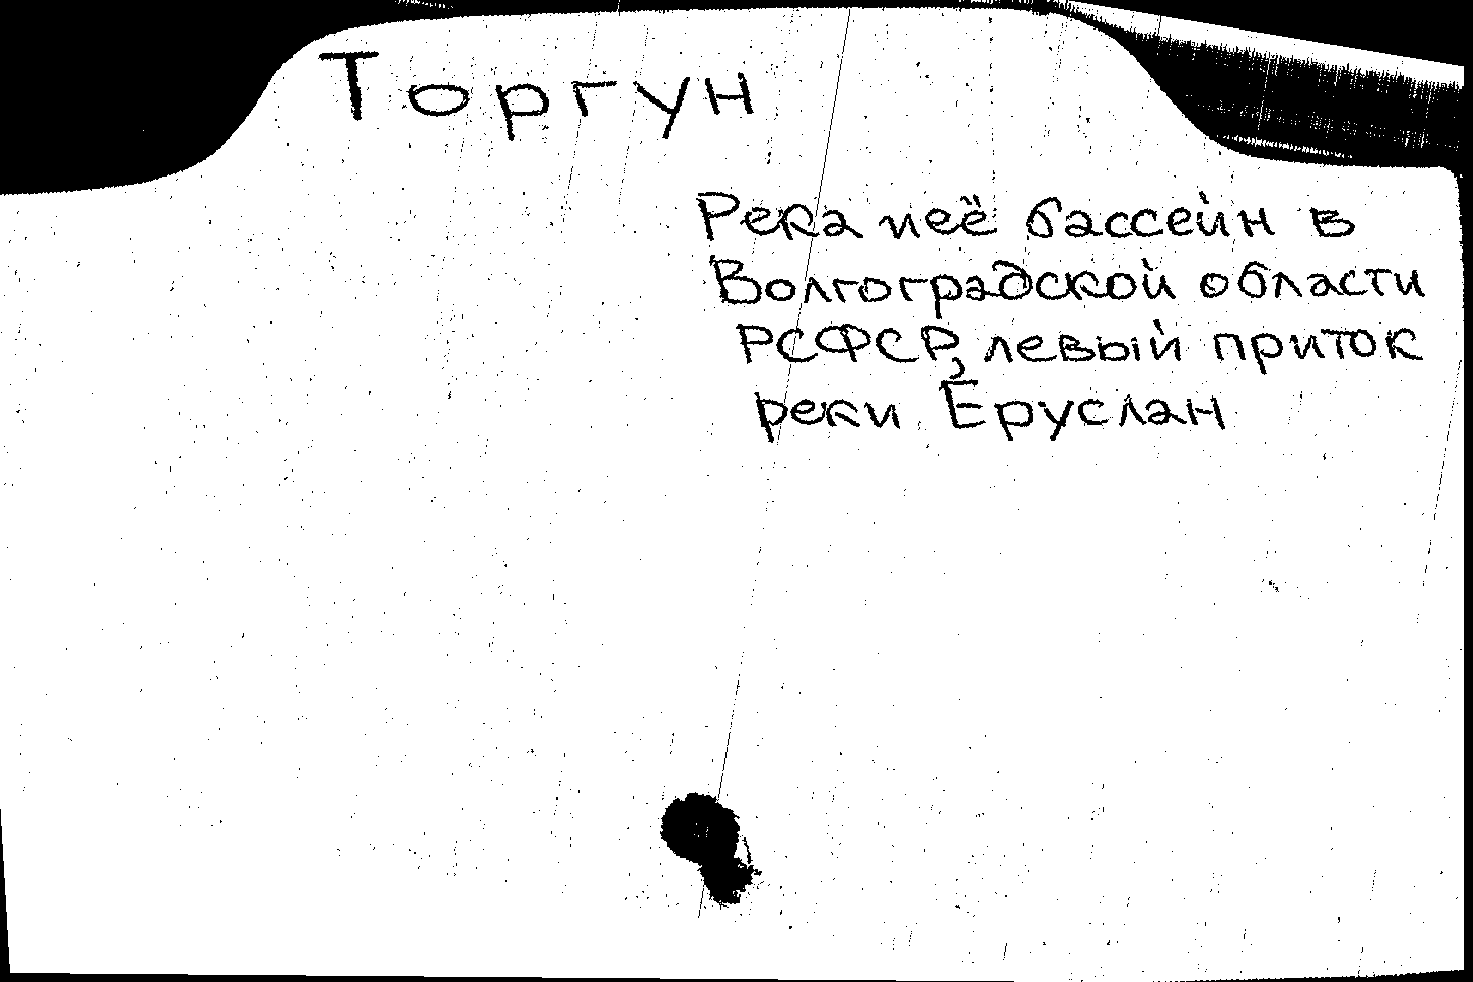 Торгун
Река и её бассейн в
Волгоградской области
РСФСР, левый приток
реки Еруслан